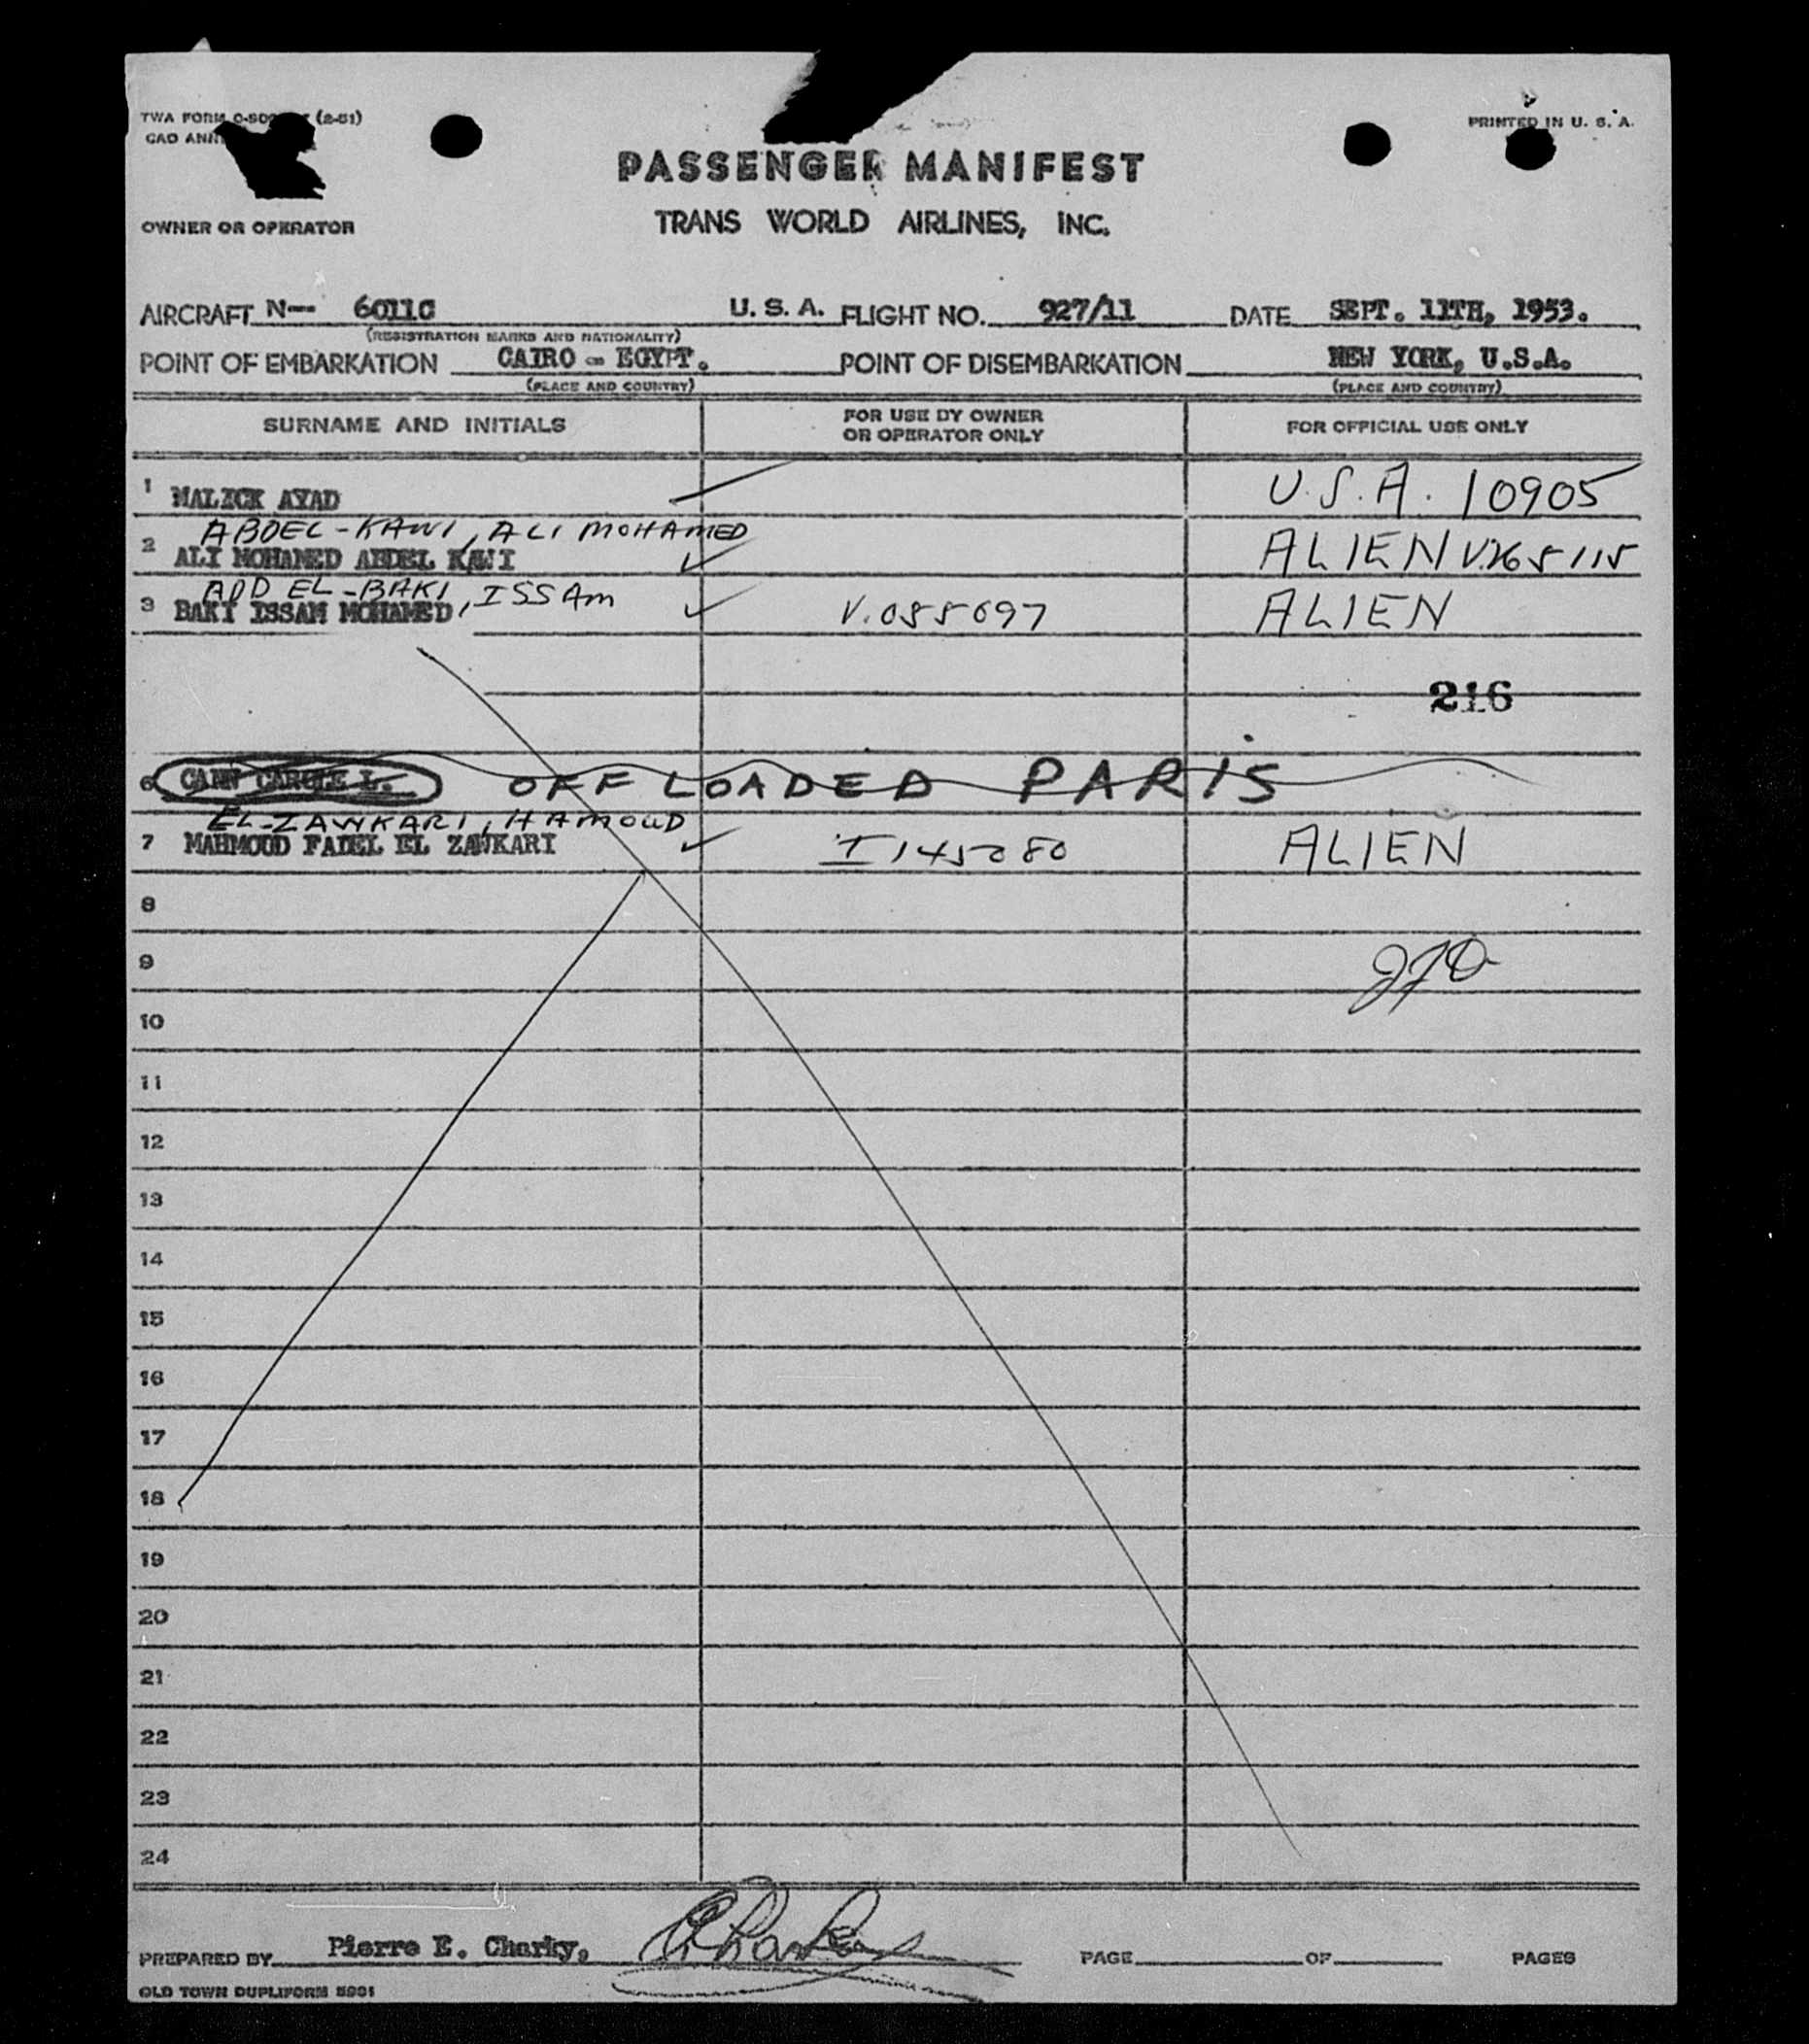 TWA FORM (2-51)
PRINTED IN U. S. A.
CAO
PASSENGER MANIFEST
OWNER OR OPERATOR
TRANS WORLD AIRLINES, INC.
AIRCRAFT N-- 6011C U. S. A. FLIGHT NO. 927/11 DATE SEPT. 11TH, 1953.
(REGISTRATION MARKS AND NATIONALITY)
POINT OF EMBARKATION CAIRO - EGYPT. POINT OF DISEMBARKATION NEW YORK, U.S.A.
(PLACE AND COUNTRY) (PLACE AND COUNTRY)
SURNAME AND INITIALS FOR USE BY OWNER OR OPERATOR ONLY FOR OFFICIAL USE ONLY
1 MALICK AYAD U.S.A. 10905
ABDEL-KAWI, ALI MOHAMED
2 ALI MOHAMED ABDEL KAWI ALIEN V.265115
ABD EL-BAKI, ISSAM
3 BAKI ISSAM MOHAMED, V.055697 ALIEN
216
6 OFF LOADED PARIS
EL-ZAWKARI, HAMOUD
7 MAHMOUD FADEL EL ZAWKARI I 145080 ALIEN
8
9
10
11
12
13
14
15
16
17
18
19
20
21
22
23
24
PREPARED BY Pierre E. Charky, PAGE OF PAGES
OLD TOWN DUPLIFORM